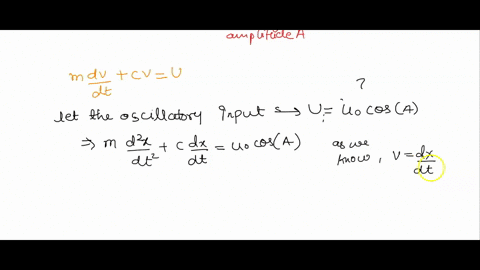 amplitude A
m dv/dt + cv = U
?
let the oscillatory Input ↝ U = u₀ cos(A)
⇒ m d²x/dt² + c dx/dt = u₀ cos(A) as we know, v = dx/dt